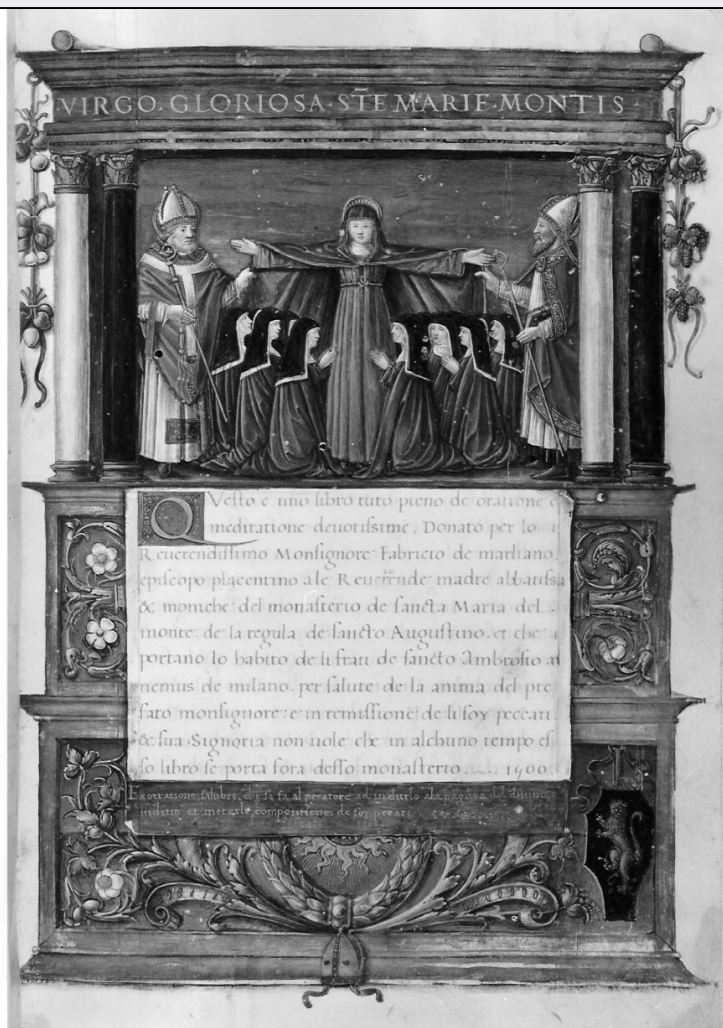 VIRGO · GLORIOSA · STE MARIE · MONTIS
QVesto e uno libro tuto pieno de oratione e
meditatione deuotissime. Donato per lo
Reuerendissimo Monsignore Fabricio de marliano.
episcopo placentino a le Reuerende madre abbatissa
& moniche del monasterio de sancta Maria del
monte. de la regula de sancto Augustino. et che
portano lo habito de li frati de sancto Ambrosio al
nemus de milano. per salute de la anima del pre
fato monsignore: e in remissione de li soy peccati.
& sua Signoria non uole che in alchuno tempo es
so libro se porta fora desso monasterio. 1500
Exortatione salubre che se fa al pecatore ad indurlo ala del diuino
inditio et compositiones de soy peccati